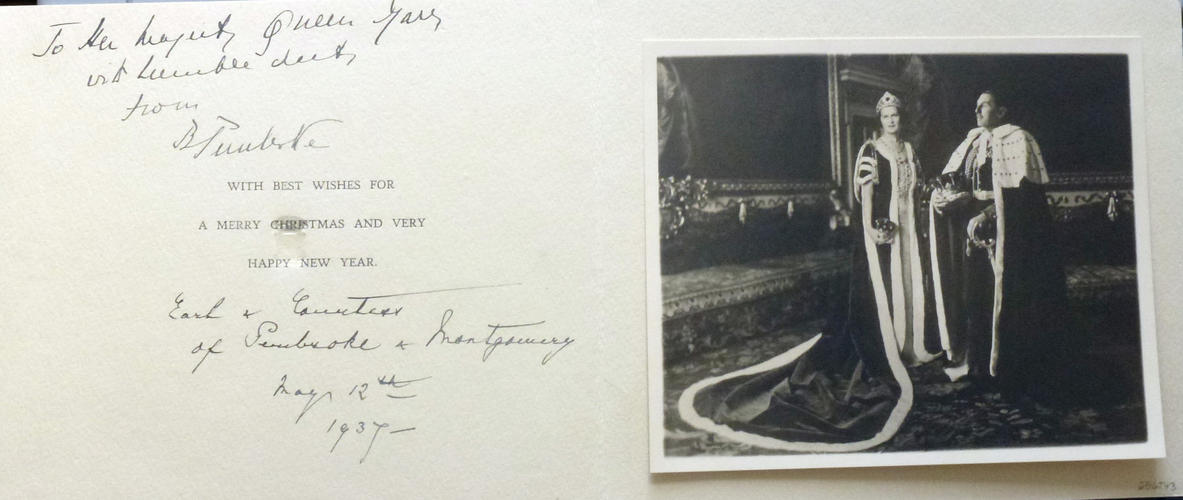 To Her Majesty Queen Mary
with humble duty
from
B Pembroke
WITH BEST WISHES FOR
A MERRY CHRISTMAS AND VERY
HAPPY NEW YEAR.
Earl & Countess
of Pembroke & Montgomery
May 12th
1937